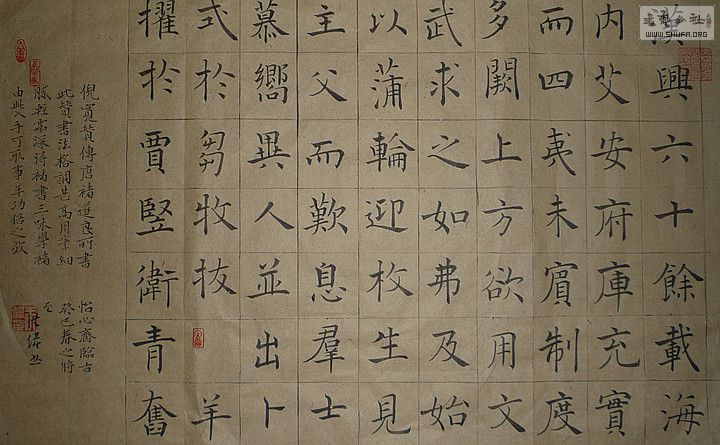 漢興六十餘載海
内艾安府庫充實
而四夷未賓制度
多闕上方欲用文
武求之如弗及始
以蒲輪迎枚生見
主父而歎息羣士
慕嚮異人並出卜
式於芻牧拔羊
擢於賈豎衛青奮
倪寬贊傳唐褚遂良所書
此贊書法格調甚高用筆細
輕靈深得褚書三味學褚
由此入手可取事半功倍之效
怡心齋臨古
癸巳春之時
WWW.SHUFA.ORG